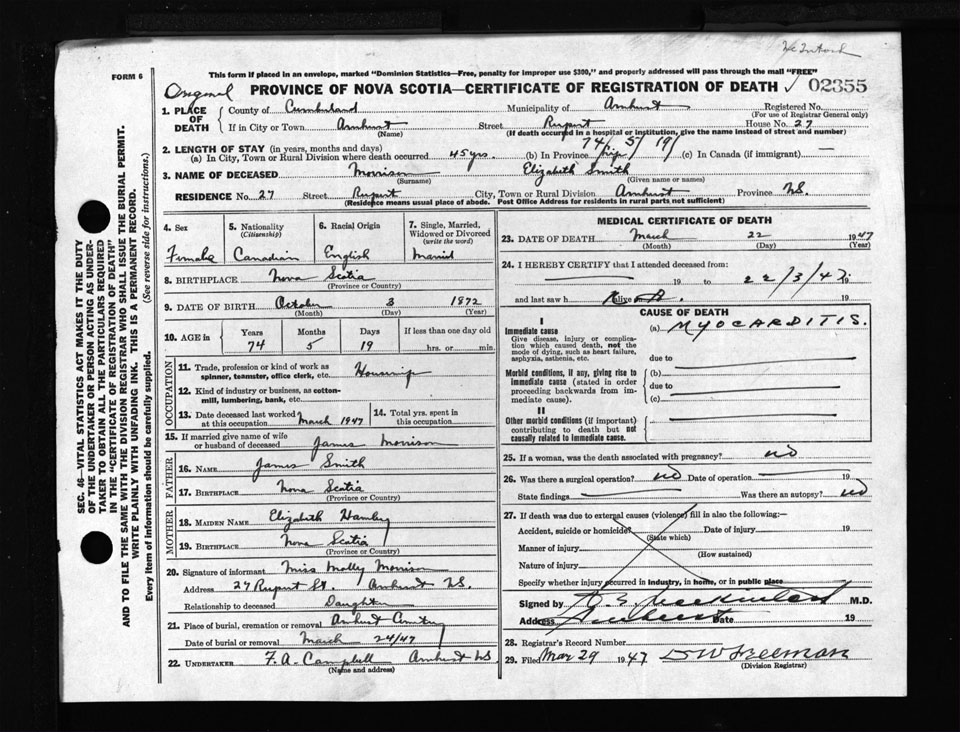 McIntosh
FORM 6
This form if placed in an envelope, marked "Dominion Statistics—Free, penalty for improper use $300," and properly addressed will pass through the mail "FREE"
Original PROVINCE OF NOVA SCOTIA—CERTIFICATE OF REGISTRATION OF DEATH 02355
1. PLACE OF DEATH County of Cumberland Municipality of Amherst Registered No.
(For use of Registrar General only)
If in City or Town Amherst Street Rupert House No. 27
(Name) (If death occurred in a hospital or institution, give the name instead of street and number)
74 / 5 / 19 /
2. LENGTH OF STAY (in years, months and days)
(a) In City, Town or Rural Division where death occurred 45 yrs. (b) In Province life (c) In Canada (if immigrant) —
3. NAME OF DECEASED Morrison Elizabeth Smith
(Surname) (Given name or names)
RESIDENCE No. 27 Street Rupert City, Town or Rural Division Amherst Province N.S.
(Residence means usual place of abode. Post Office Address for residents in rural parts not sufficient)
4. Sex 5. Nationality (Citizenship) 6. Racial Origin 7. Single, Married, Widowed or Divorced (write the word)
Female Canadian English Married
8. BIRTHPLACE Nova Scotia
(Province or Country)
9. DATE OF BIRTH October 3 1872
(Month) (Day) (Year)
10. AGE in Years Months Days If less than one day old
74 5 19 hrs. or min.
OCCUPATION
11. Trade, profession or kind of work as spinner, teamster, office clerk, etc. Housewife
12. Kind of industry or business, as cotton-mill, lumbering, bank, etc.
13. Date deceased last worked at this occupation March 1947 14. Total yrs. spent in this occupation
15. If married give name of wife or husband of deceased James Morrison
FATHER
16. NAME James Smith
17. BIRTHPLACE Nova Scotia
(Province or Country)
MOTHER
18. MAIDEN NAME Elizabeth
19. BIRTHPLACE Nova Scotia
(Province or Country)
20. Signature of informant Miss Molly Morrison
Address 27 Rupert St. Amherst N.S.
Relationship to deceased Daughter
21. Place of burial, cremation or removal Amherst Cemetery
Date of burial or removal March 24/47
22. UNDERTAKER F. A. Campbell Amherst N.S.
(Name and address)
MEDICAL CERTIFICATE OF DEATH
23. DATE OF DEATH March 22 1947
(Month) (Day) (Year)
24. I HEREBY CERTIFY that I attended deceased from:
19 to 22/3/47 19
and last saw h alive on 19
CAUSE OF DEATH
I
Immediate cause (a) MYOCARDITIS.
Give disease, injury or complication which caused death, not the mode of dying, such as heart failure, asphyxia, asthenia, etc.
due to
Morbid conditions, if any, giving rise to immediate cause (stated in order proceeding backwards from immediate cause).
(b)
due to
(c)
II
Other morbid conditions (if important) contributing to death but not causally related to immediate cause.
25. If a woman, was the death associated with pregnancy? no
26. Was there a surgical operation? no Date of operation 19
State findings Was there an autopsy? no
27. If death was due to external causes (violence) fill in also the following:—
Accident, suicide or homicide? Date of injury 19
(State which)
Manner of injury
(How sustained)
Nature of injury
Specify whether injury occurred in industry, in home, or in public place
Signed by M.D.
Address Amherst Date 19
28. Registrar's Record Number
29. Filed Mar 29 1947 D W Freeman
(Division Registrar)
SEC. 46—VITAL STATISTICS ACT MAKES IT THE DUTY
OF THE UNDERTAKER OR PERSON ACTING AS UNDER-
TAKER TO OBTAIN ALL THE PARTICULARS REQUIRED
IN THE "CERTIFICATE OF REGISTRATION OF DEATH"
AND TO FILE THE SAME WITH THE DIVISION REGISTRAR WHO SHALL ISSUE THE BURIAL PERMIT.
WRITE PLAINLY WITH UNFADING INK. THIS IS A PERMANENT RECORD.
Every item of information should be carefully supplied. (See reverse side for instructions.)